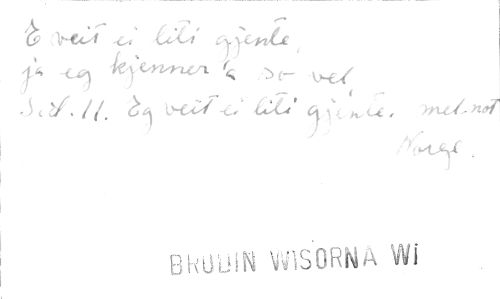 E veit ei liti gjente,
ja eg kjenner'a so vel
S.d. 11. Eg veit ei liti gjente. mel. not
Norge.
BRUDIN WISORNA Wi